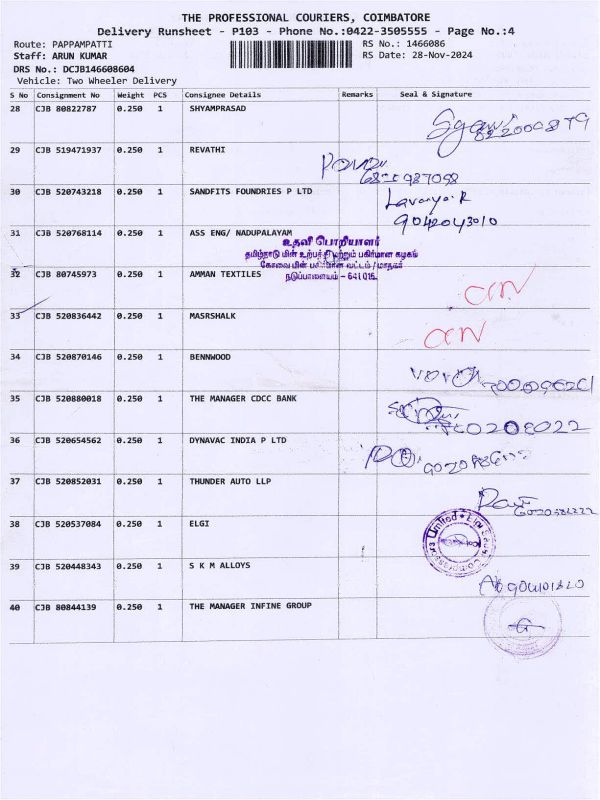 THE PROFESSIONAL COURIERS, COIMBATORE
Delivery Runsheet - P103 - Phone No.:0422-3505555 - Page No.:4
Route: PAPPAMPATTI RS No.: 1466086
Staff: ARUN KUMAR RS Date: 28-Nov-2024
DRS No.: DCJB146608604
Vehicle: Two Wheeler Delivery
S No Consignment No Weight PCS Consignee Details Remarks Seal & Signature
28 CJB 80822787 0.250 1 SHYAMPRASAD
29 CJB 519471937 0.250 1 REVATHI
30 CJB 520743218 0.250 1 SANDFITS FOUNDRIES P LTD Lavanya.R
9042043010
31 CJB 520768114 0.250 1 ASS ENG/ NADUPALAYAM
உதவி பொறியாளர்
தமிழ்நாடு மின் உற்பத்தி மற்றும் பகிர்மான கழகம்
கோவை மின் பகிர்மான வட்டம் / மாநகர்
நடுப்பாளையம் - 641 016.
32 CJB 80745973 0.250 1 AMMAN TEXTILES
33 CJB 520836442 0.250 1 MASRSHALK
34 CJB 520870146 0.250 1 BENNWOOD
35 CJB 520880018 0.250 1 THE MANAGER CDCC BANK
36 CJB 520654562 0.250 1 DYNAVAC INDIA P LTD
37 CJB 520852031 0.250 1 THUNDER AUTO LLP
38 CJB 520537084 0.250 1 ELGI
39 CJB 520448343 0.250 1 S K M ALLOYS
40 CJB 80844139 0.250 1 THE MANAGER INFINE GROUP